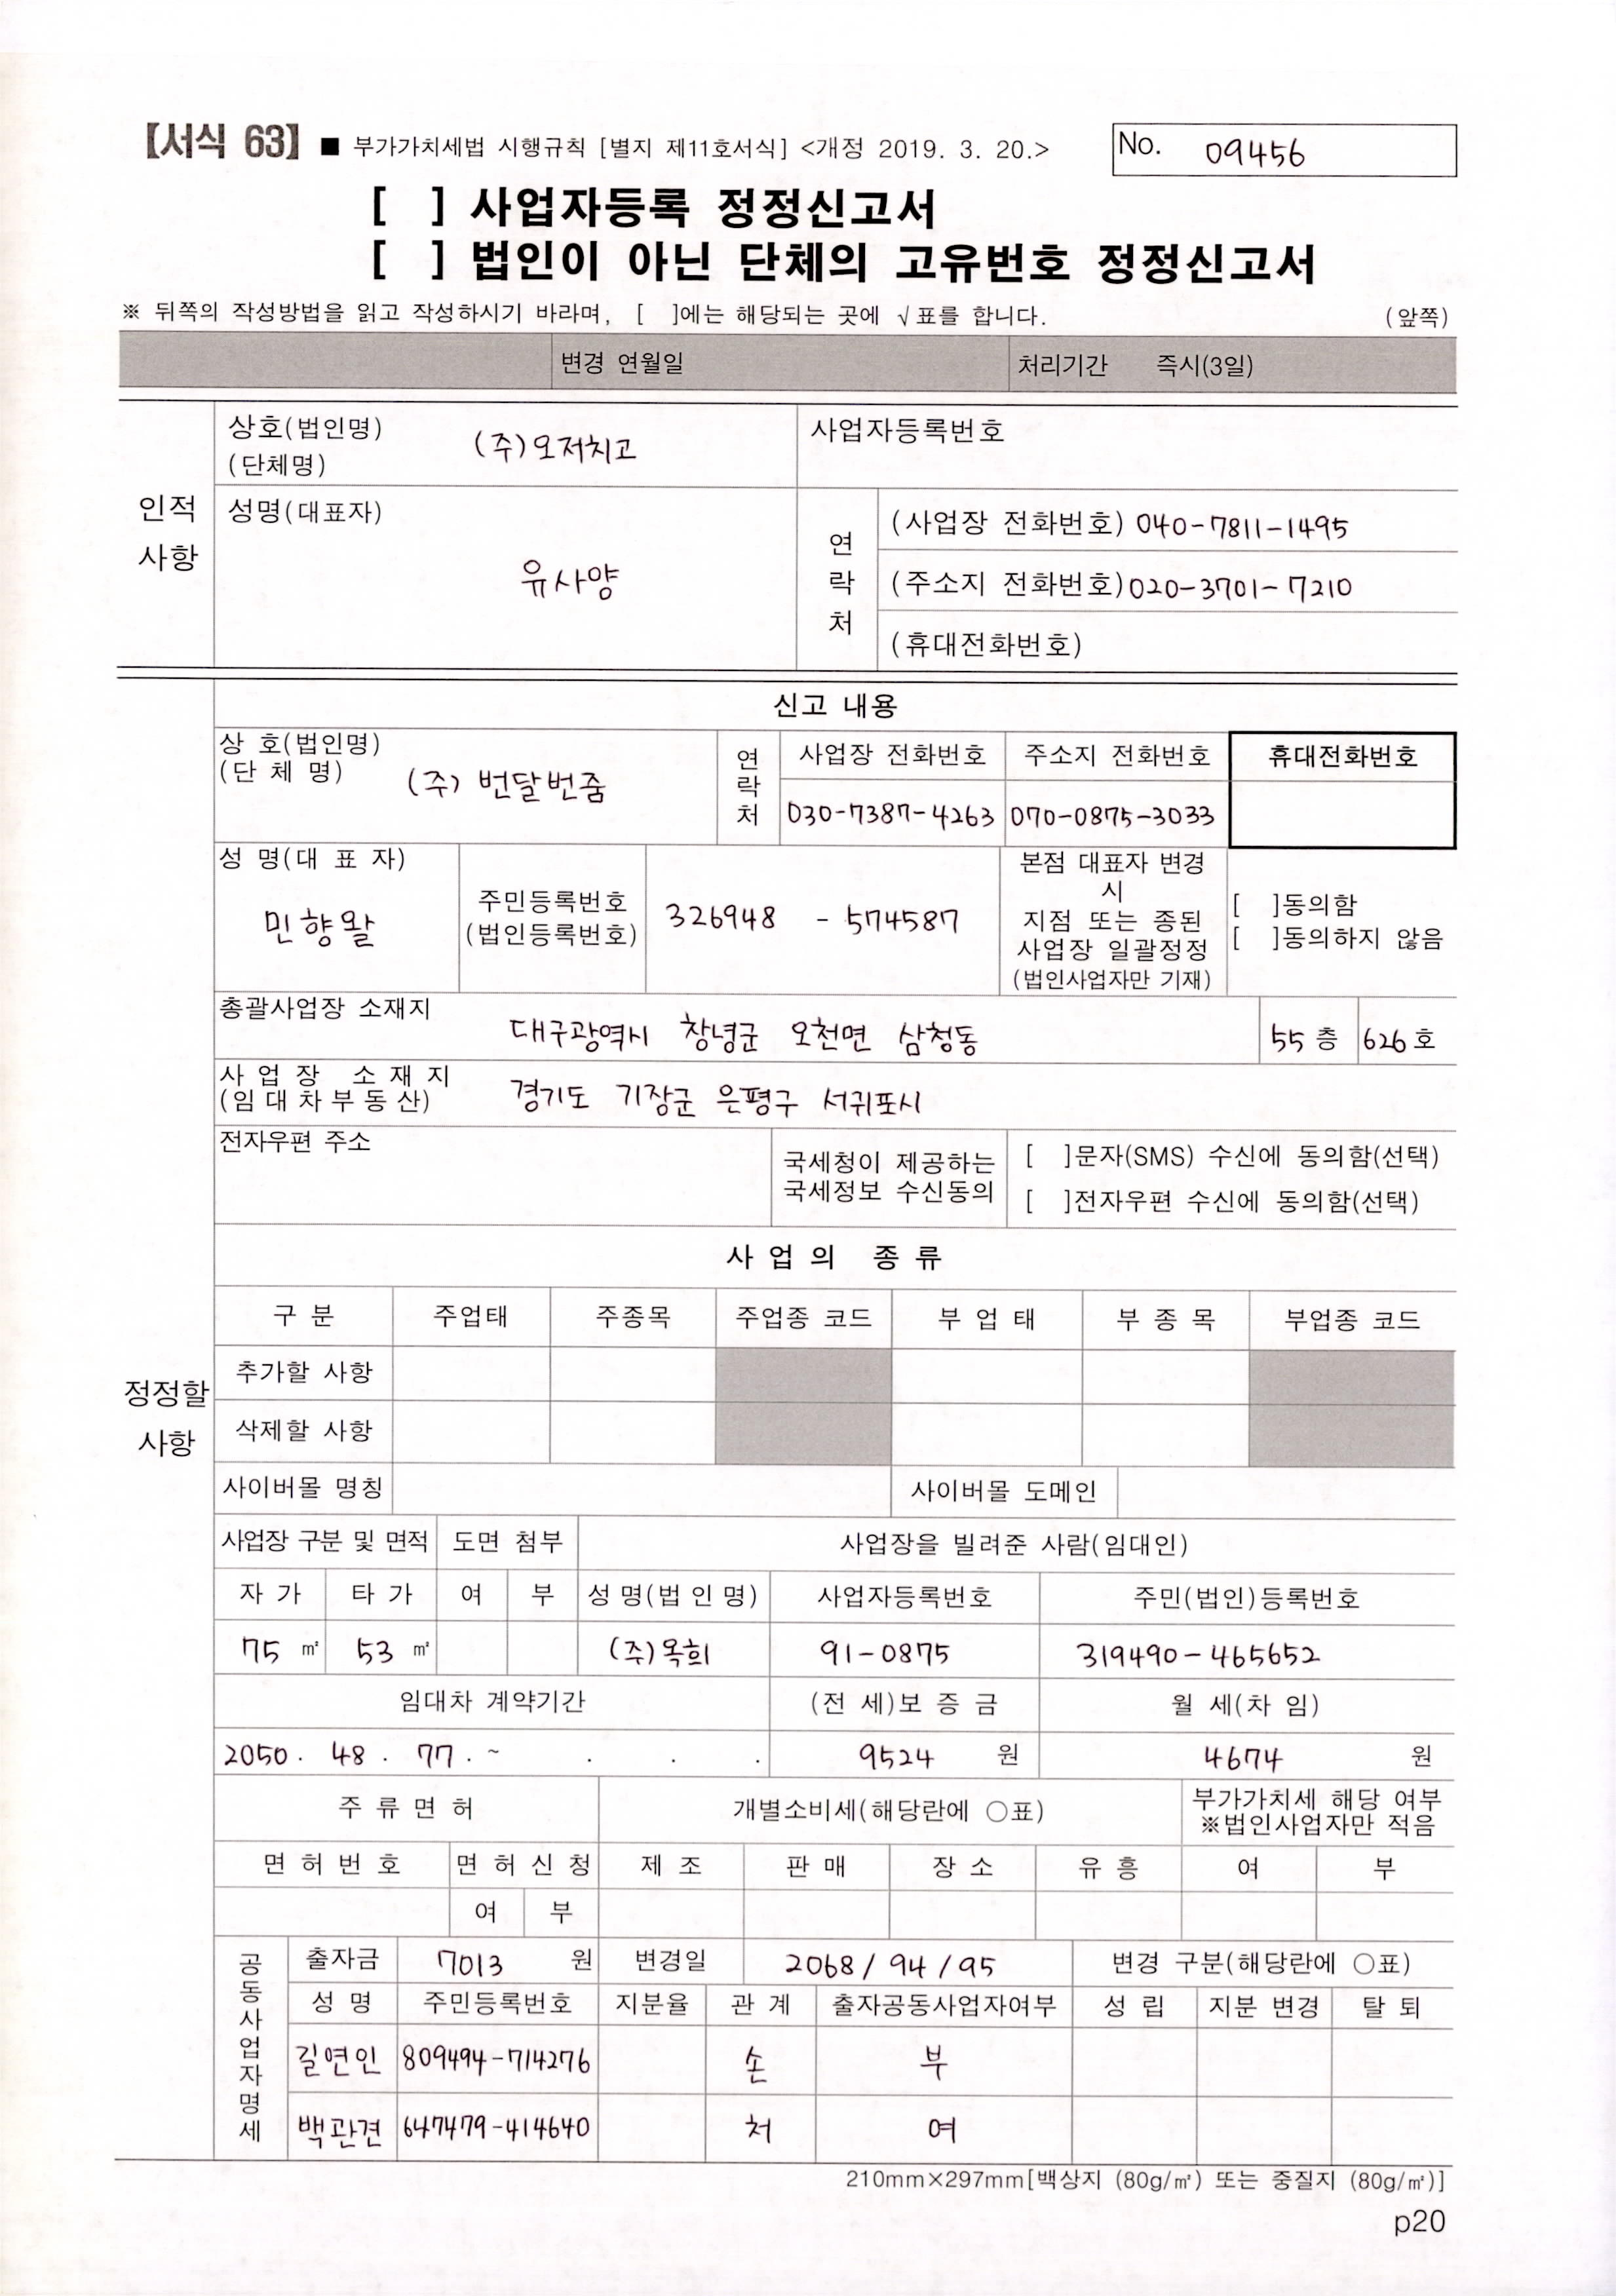 【서식 63】 ■ 부가가치세법 시행규칙 [별지 제11호서식] <개정 2019. 3. 20.>
No. 09456
[ ] 사업자등록 정정신고서
[ ] 법인이 아닌 단체의 고유번호 정정신고서
※ 뒤쪽의 작성방법을 읽고 작성하시기 바라며, [ ]에는 해당되는 곳에 √표를 합니다. (앞쪽)
변경 연월일 처리기간 즉시(3일)
인적 사항
상호(법인명) (단체명) (주)오저치고 사업자등록번호
성명(대표자) 유사양
연락처
(사업장 전화번호) 040-7811-1495
(주소지 전화번호) 020-3701-7210
(휴대전화번호)
정정할 사항
신고 내용
상 호(법인명) (단 체 명) (주) 번달번줌
연락처 사업장 전화번호 주소지 전화번호 휴대전화번호
030-7387-4263 070-0875-3033
성 명(대 표 자) 민향왈
주민등록번호 (법인등록번호) 326948 - 574587
본점 대표자 변경
시
지점 또는 종된
사업장 일괄정정
(법인사업자만 기재)
[ ]동의함
[ ]동의하지 않음
총괄사업장 소재지 대구광역시 창녕군 오천면 삼청동 55 층 626 호
사 업 장 소 재 지 (임 대 차 부 동 산) 경기도 기장군 은평구 서귀포시
전자우편 주소
국세청이 제공하는 국세정보 수신동의
[ ]문자(SMS) 수신에 동의함(선택)
[ ]전자우편 수신에 동의함(선택)
사 업 의 종 류
구 분 주업태 주종목 주업종 코드 부 업 태 부 종 목 부업종 코드
추가할 사항
삭제할 사항
사이버몰 명칭 사이버몰 도메인
사업장 구분 및 면적 도면 첨부 사업장을 빌려준 사람(임대인)
자 가 타 가 여 부 성 명(법 인 명) 사업자등록번호 주민(법인)등록번호
75 ㎡ 53 ㎡ (주)옥희 91-0875 319490-465652
임대차 계약기간 (전 세)보 증 금 월 세(차 임)
2050. 48. 77. ~ . . . 9524 원 4674 원
주 류 면 허 개별소비세(해당란에 ○표) 부가가치세 해당 여부
※법인사업자만 적음
면 허 번 호 면 허 신 청 제 조 판 매 장 소 유 흥 여 부
여 부
공동사업자명세
출자금 7013 원 변경일 2068 / 94 / 95 변경 구분(해당란에 ○표)
성 명 주민등록번호 지분율 관 계 출자공동사업자여부 성 립 지분 변경 탈 퇴
길연인 809494-714276 손 부
백관견 647479-414640 처 여
210mm×297mm[백상지 (80g/㎡) 또는 중질지 (80g/㎡)]
p20